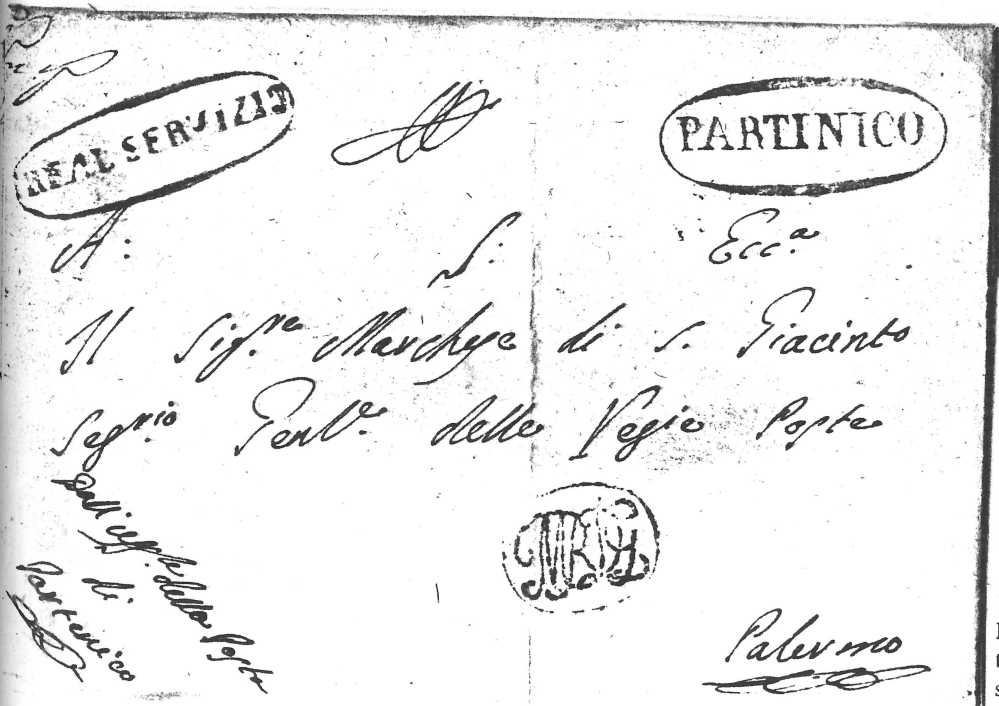 REAL SERVIZIO
PARTINICO
A: S: Ecc.a
Il Sig.re Marchese di S. Giacinto
Seg.rio Genl.e delle Regie Poste
Dall'Uff.le della Posta
di
Partenico
Palermo